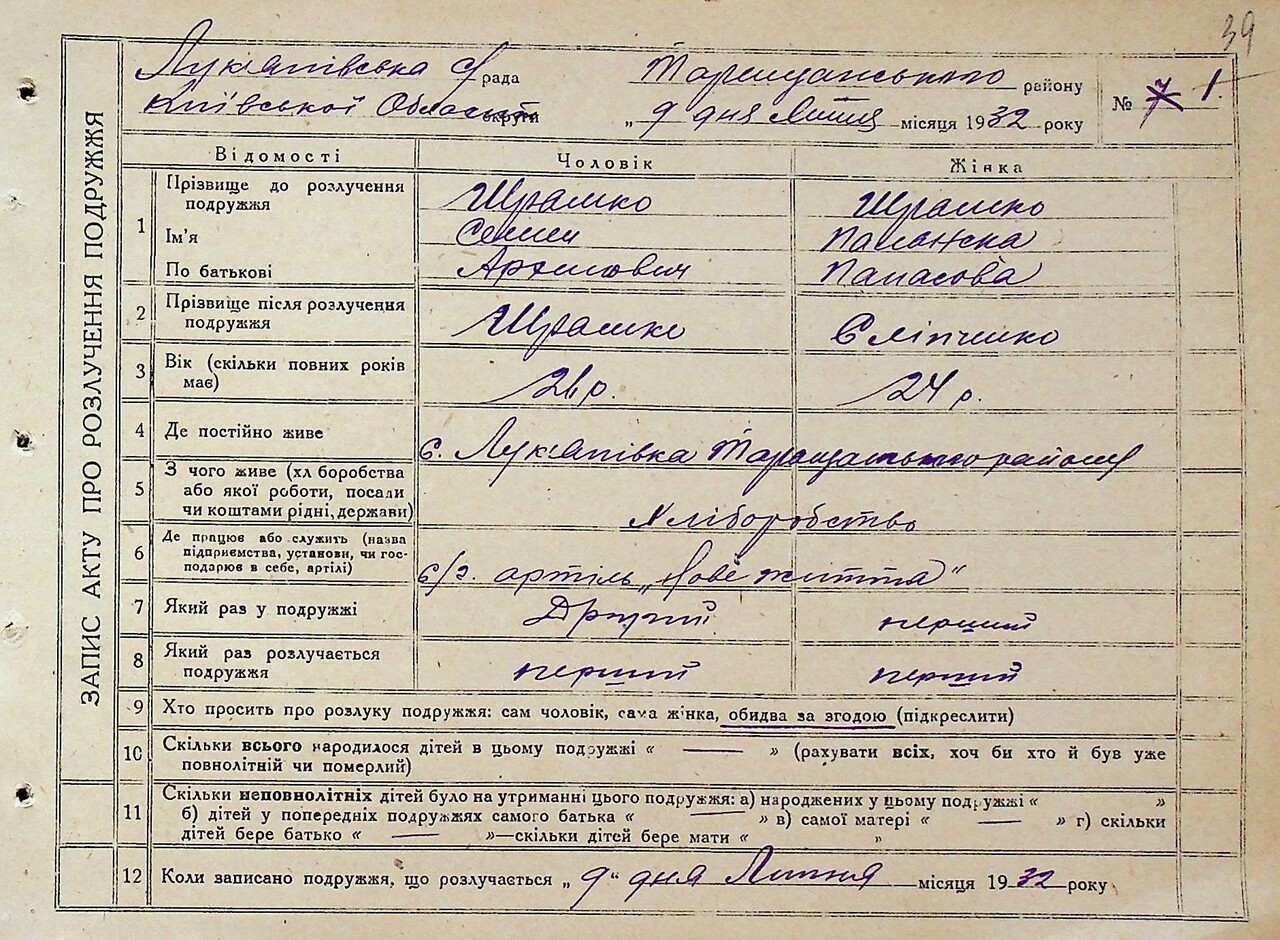 39
Лук'янівська с/рада Таращанського району
Київської Области округи „ 9 дня Липня місяця 1932 року
№ 7 1.
ЗАПИС АКТУ ПРО РОЗЛУЧЕННЯ ПОДРУЖЖЯ
Відомості Чоловік Жінка
1 Прізвище до розлучення подружжя Шрамко Шрамко
Ім'я Семен
По батькові Панасова
2 Прізвище після розлучення подружжя Шрамко Сліпченко
3 Вік (скільки повних років має) 26 р. 24 р.
4 Де постійно живе с. Лук'янівка Таращанського району
5 З чого живе (хліборобства або якої роботи, посади чи коштами рідні, держави) Хліборобство
6 Де працює або служить (назва підприємства, установи, чи господарює в себе, артілі) с/г. артіль „Нове життя"
7 Який раз у подружжі Другий перший
8 Який раз розлучається подружжя перший перший
9 Хто просить про розлуку подружжя: сам чоловік, сама жінка, обидва за згодою (підкреслити)
10 Скільки всього народилося дітей в цьому подружжі « — » (рахувати всіх, хоч би хто й був уже
повнолітній чи померлий)
11 Скільки неповнолітніх дітей було на утриманні цього подружжя: а) народжених у цьому подружжі « »
б) дітей у попередніх подружжях самого батька « — » в) самої матері « — » г) скільки
дітей бере батько « — »—скільки дітей бере мати « »
12 Коли записано подружжя, що розлучається „ 9" дня Липня місяця 1932 року